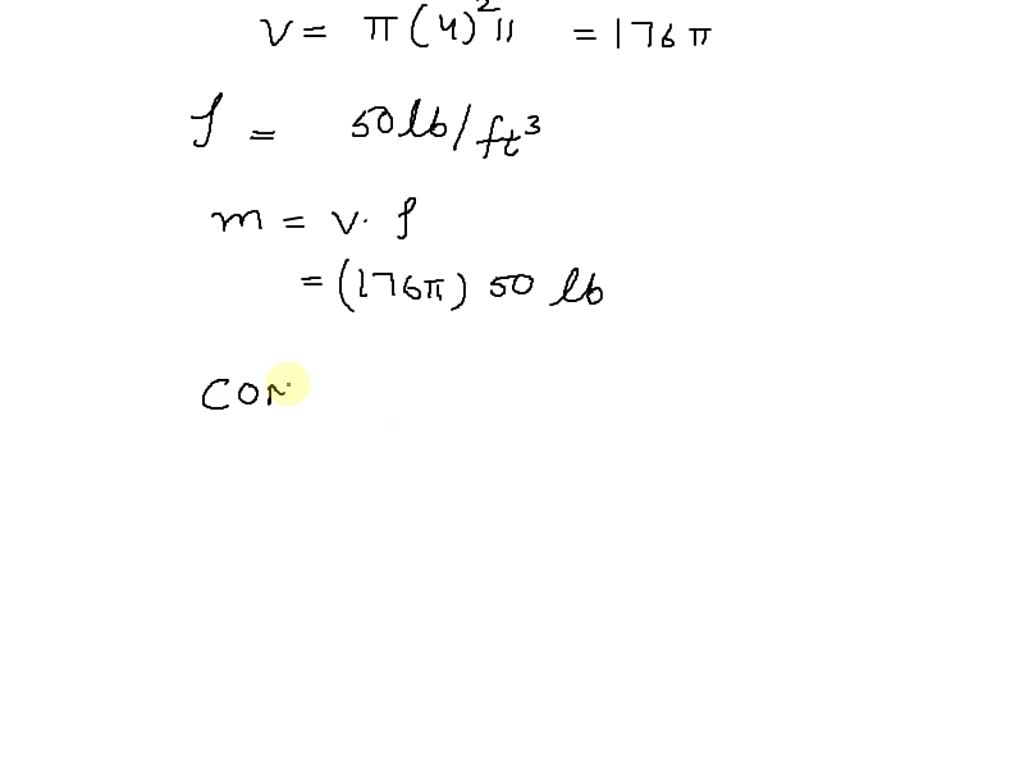 V = π(4)²11 = 176π
ρ = 50 lb/ft³
m = v · ρ
= (176π) 50 lb
COM